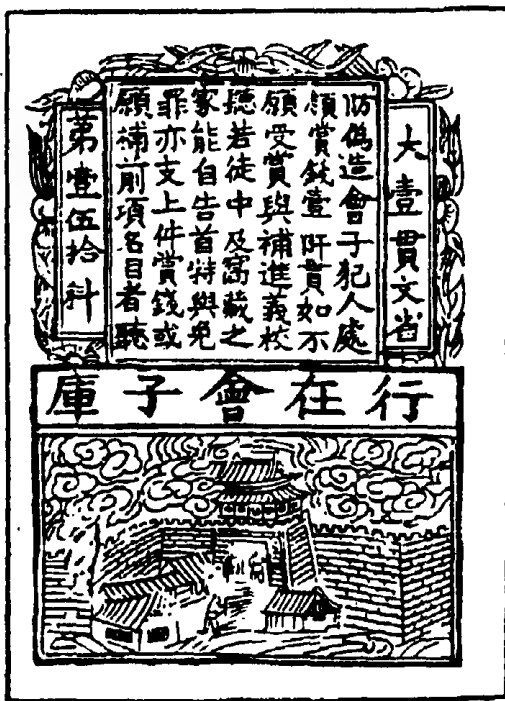 大壹貫文省
防偽造會子犯人處
領賞錢壹阡貫如不
願受賞與補進義校
聽若徒中及窩藏之
家能自告首特與免
罪亦支上件賞錢或
願補前項名目者聽
第壹伍拾料
行在會子庫